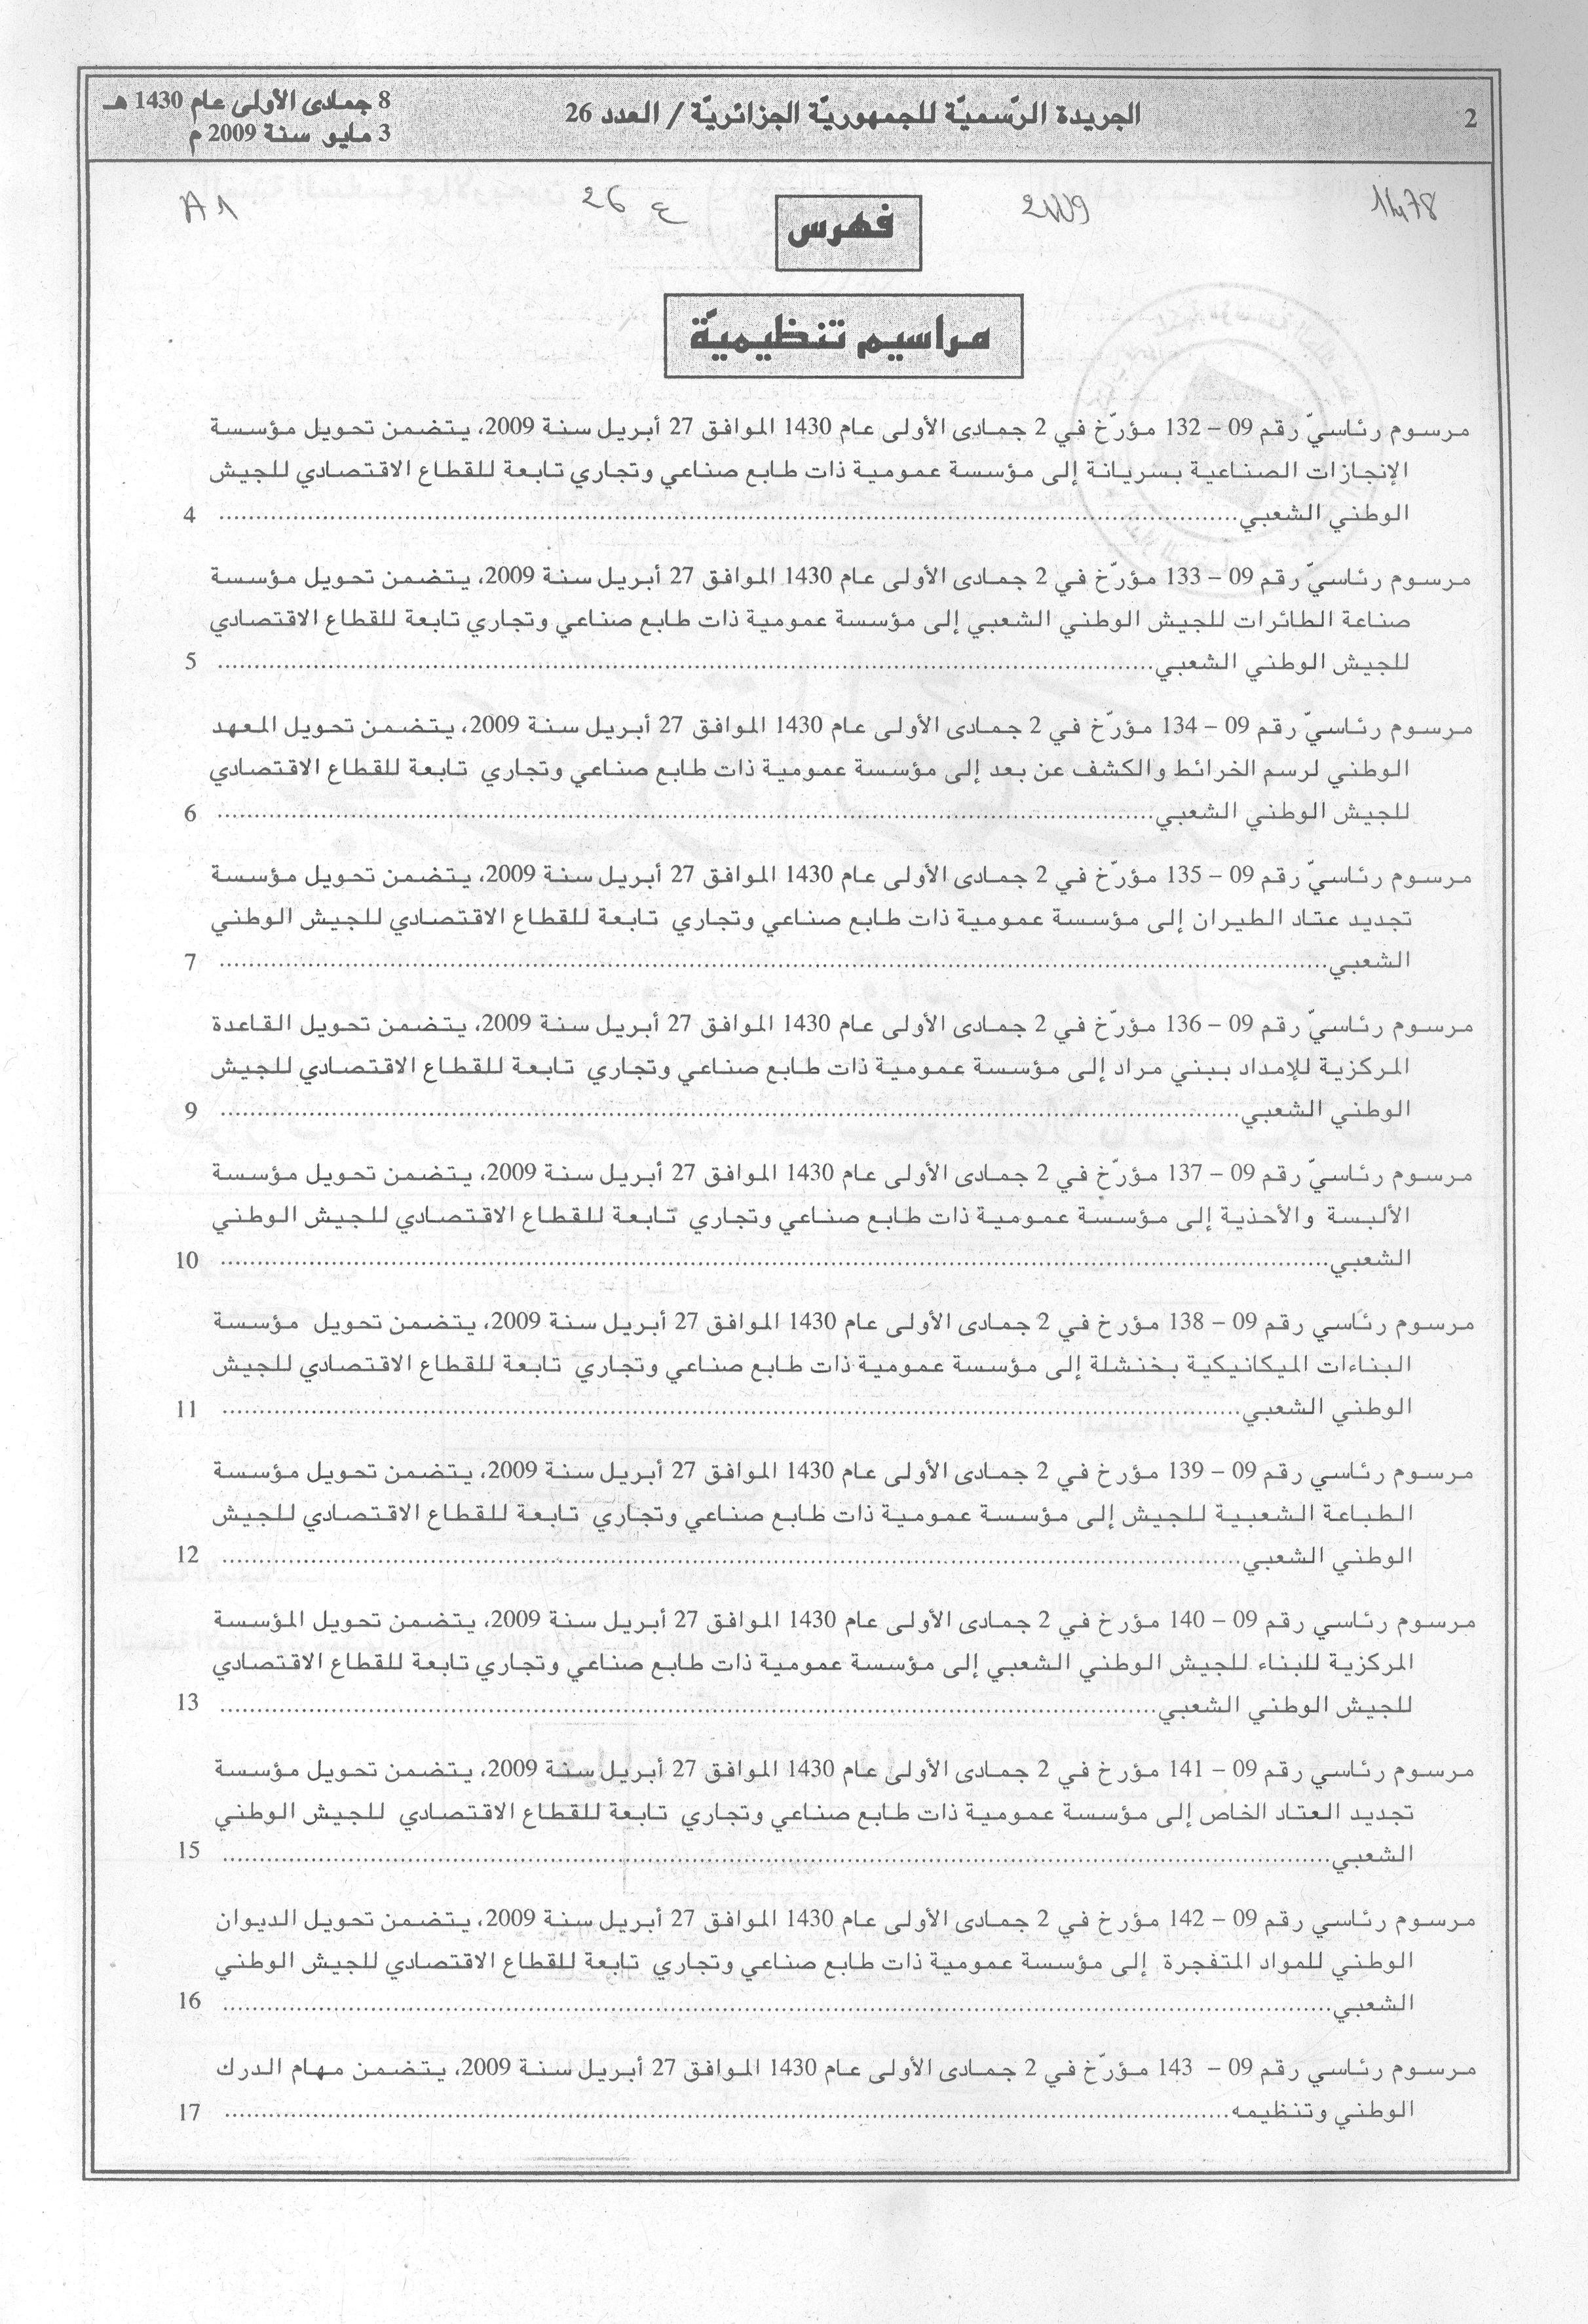 2
الجريدة الرّسميّة للجمهوريّة الجزائريّة / العدد 26
8 جمادى الأولى عام 1430 هـ
3 مايو سنة 2009 م
1478 2009 ع 26 A1
فهرس
مراسيم تنظيميّة
مرسوم رئاسيّ رقم 09 – 132 مؤرّخ في 2 جمادى الأولى عام 1430 الموافق 27 أبريل سنة 2009، يتضمن تحويل مؤسسة
الإنجازات الصناعية بسريانة إلى مؤسسة عمومية ذات طابع صناعي وتجاري تابعة للقطاع الاقتصادي للجيش
الوطني الشعبي.......... 4
مرسوم رئاسيّ رقم 09 – 133 مؤرّخ في 2 جمادى الأولى عام 1430 الموافق 27 أبريل سنة 2009، يتضمن تحويل مؤسسة
صناعة الطائرات للجيش الوطني الشعبي إلى مؤسسة عمومية ذات طابع صناعي وتجاري تابعة للقطاع الاقتصادي
للجيش الوطني الشعبي.......... 5
مرسوم رئاسيّ رقم 09 – 134 مؤرّخ في 2 جمادى الأولى عام 1430 الموافق 27 أبريل سنة 2009، يتضمن تحويل المعهد
الوطني لرسم الخرائط والكشف عن بعد إلى مؤسسة عمومية ذات طابع صناعي وتجاري تابعة للقطاع الاقتصادي
للجيش الوطني الشعبي.......... 6
مرسوم رئاسيّ رقم 09 – 135 مؤرّخ في 2 جمادى الأولى عام 1430 الموافق 27 أبريل سنة 2009، يتضمن تحويل مؤسسة
تجديد عتاد الطيران إلى مؤسسة عمومية ذات طابع صناعي وتجاري تابعة للقطاع الاقتصادي للجيش الوطني
الشعبي.......... 7
مرسوم رئاسيّ رقم 09 – 136 مؤرّخ في 2 جمادى الأولى عام 1430 الموافق 27 أبريل سنة 2009، يتضمن تحويل القاعدة
المركزية للإمداد ببني مراد إلى مؤسسة عمومية ذات طابع صناعي وتجاري تابعة للقطاع الاقتصادي للجيش
الوطني الشعبي.......... 9
مرسوم رئاسيّ رقم 09 – 137 مؤرّخ في 2 جمادى الأولى عام 1430 الموافق 27 أبريل سنة 2009، يتضمن تحويل مؤسسة
الألبسة والأحذية إلى مؤسسة عمومية ذات طابع صناعي وتجاري تابعة للقطاع الاقتصادي للجيش الوطني
الشعبي.......... 10
مرسوم رئاسي رقم 09 – 138 مؤرخ في 2 جمادى الأولى عام 1430 الموافق 27 أبريل سنة 2009، يتضمن تحويل مؤسسة
البناءات الميكانيكية بخنشلة إلى مؤسسة عمومية ذات طابع صناعي وتجاري تابعة للقطاع الاقتصادي للجيش
الوطني الشعبي.......... 11
مرسوم رئاسي رقم 09 – 139 مؤرخ في 2 جمادى الأولى عام 1430 الموافق 27 أبريل سنة 2009، يتضمن تحويل مؤسسة
الطباعة الشعبية للجيش إلى مؤسسة عمومية ذات طابع صناعي وتجاري تابعة للقطاع الاقتصادي للجيش
الوطني الشعبي.......... 12
مرسوم رئاسي رقم 09 – 140 مؤرخ في 2 جمادى الأولى عام 1430 الموافق 27 أبريل سنة 2009، يتضمن تحويل المؤسسة
المركزية للبناء للجيش الوطني الشعبي إلى مؤسسة عمومية ذات طابع صناعي وتجاري تابعة للقطاع الاقتصادي
للجيش الوطني الشعبي.......... 13
مرسوم رئاسي رقم 09 – 141 مؤرخ في 2 جمادى الأولى عام 1430 الموافق 27 أبريل سنة 2009، يتضمن تحويل مؤسسة
تجديد العتاد الخاص إلى مؤسسة عمومية ذات طابع صناعي وتجاري تابعة للقطاع الاقتصادي للجيش الوطني
الشعبي.......... 15
مرسوم رئاسي رقم 09 – 142 مؤرخ في 2 جمادى الأولى عام 1430 الموافق 27 أبريل سنة 2009، يتضمن تحويل الديوان
الوطني للمواد المتفجرة إلى مؤسسة عمومية ذات طابع صناعي وتجاري تابعة للقطاع الاقتصادي للجيش الوطني
الشعبي.......... 16
مرسوم رئاسي رقم 09 – 143 مؤرّخ في 2 جمادى الأولى عام 1430 الموافق 27 أبريل سنة 2009، يتضمن مهام الدرك
الوطني وتنظيمه.......... 17